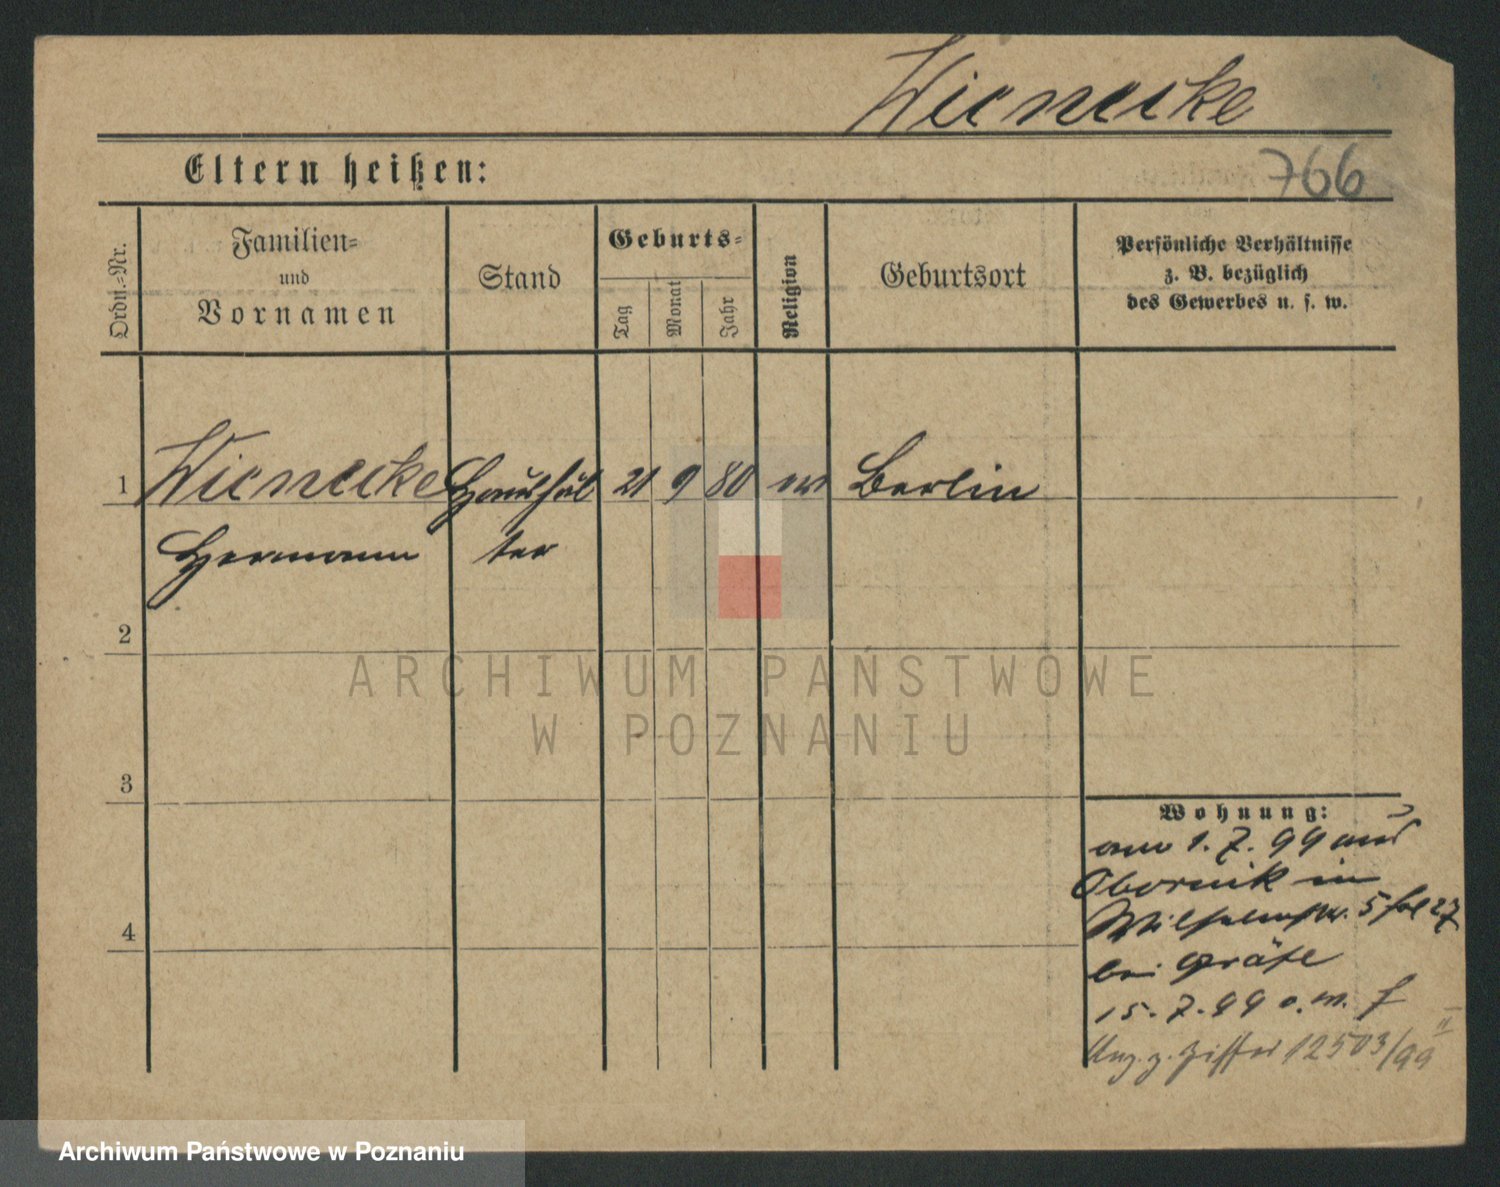 Wienecke
Eltern heißen:
766
Ordn.=Nr.
Familien=
und
Vornamen
Stand
Geburts=
Tag
Monat
Jahr
Religion
Geburtsort
Persönliche Verhältnisse
z. B. bezüglich
des Gewerbes u. s. w.
1
Wienecke
Haushäl
21
9
80
ev
Berlin
Hermann
ter
2
ARCHIWUM PAŃSTWOWE
W POZNANIU
3
Wohnung:
am 1. 7. 99 aus
Obornik in
Wilhelmstr. 5 27
4
bei Gräfe
15. 7. 99 o. m.
12503/99 II
Archiwum Państwowe w Poznaniu